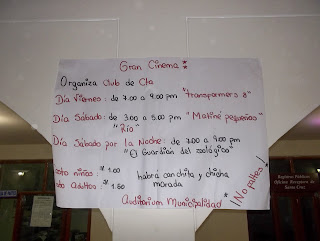 Gran Cinema :
Organiza Club de Cta
Día Viernes : de 7.00 a 9.00 pm "Transformers 3"
Día Sábado : de 3.00 a 5.00 pm "Matiné pequeños"
"Río"
Día Sábado por la Noche : de 7.00 a 9.00 pm
"El Guardián del zoológico"
niños : S/ 1.00 habrá canchita y chicha
Adultos : S/ 1.50 morada
¡No faltes!
Auditorium Municipalidad
Registros Públicos
Oficina Receptora de
Santa Cruz